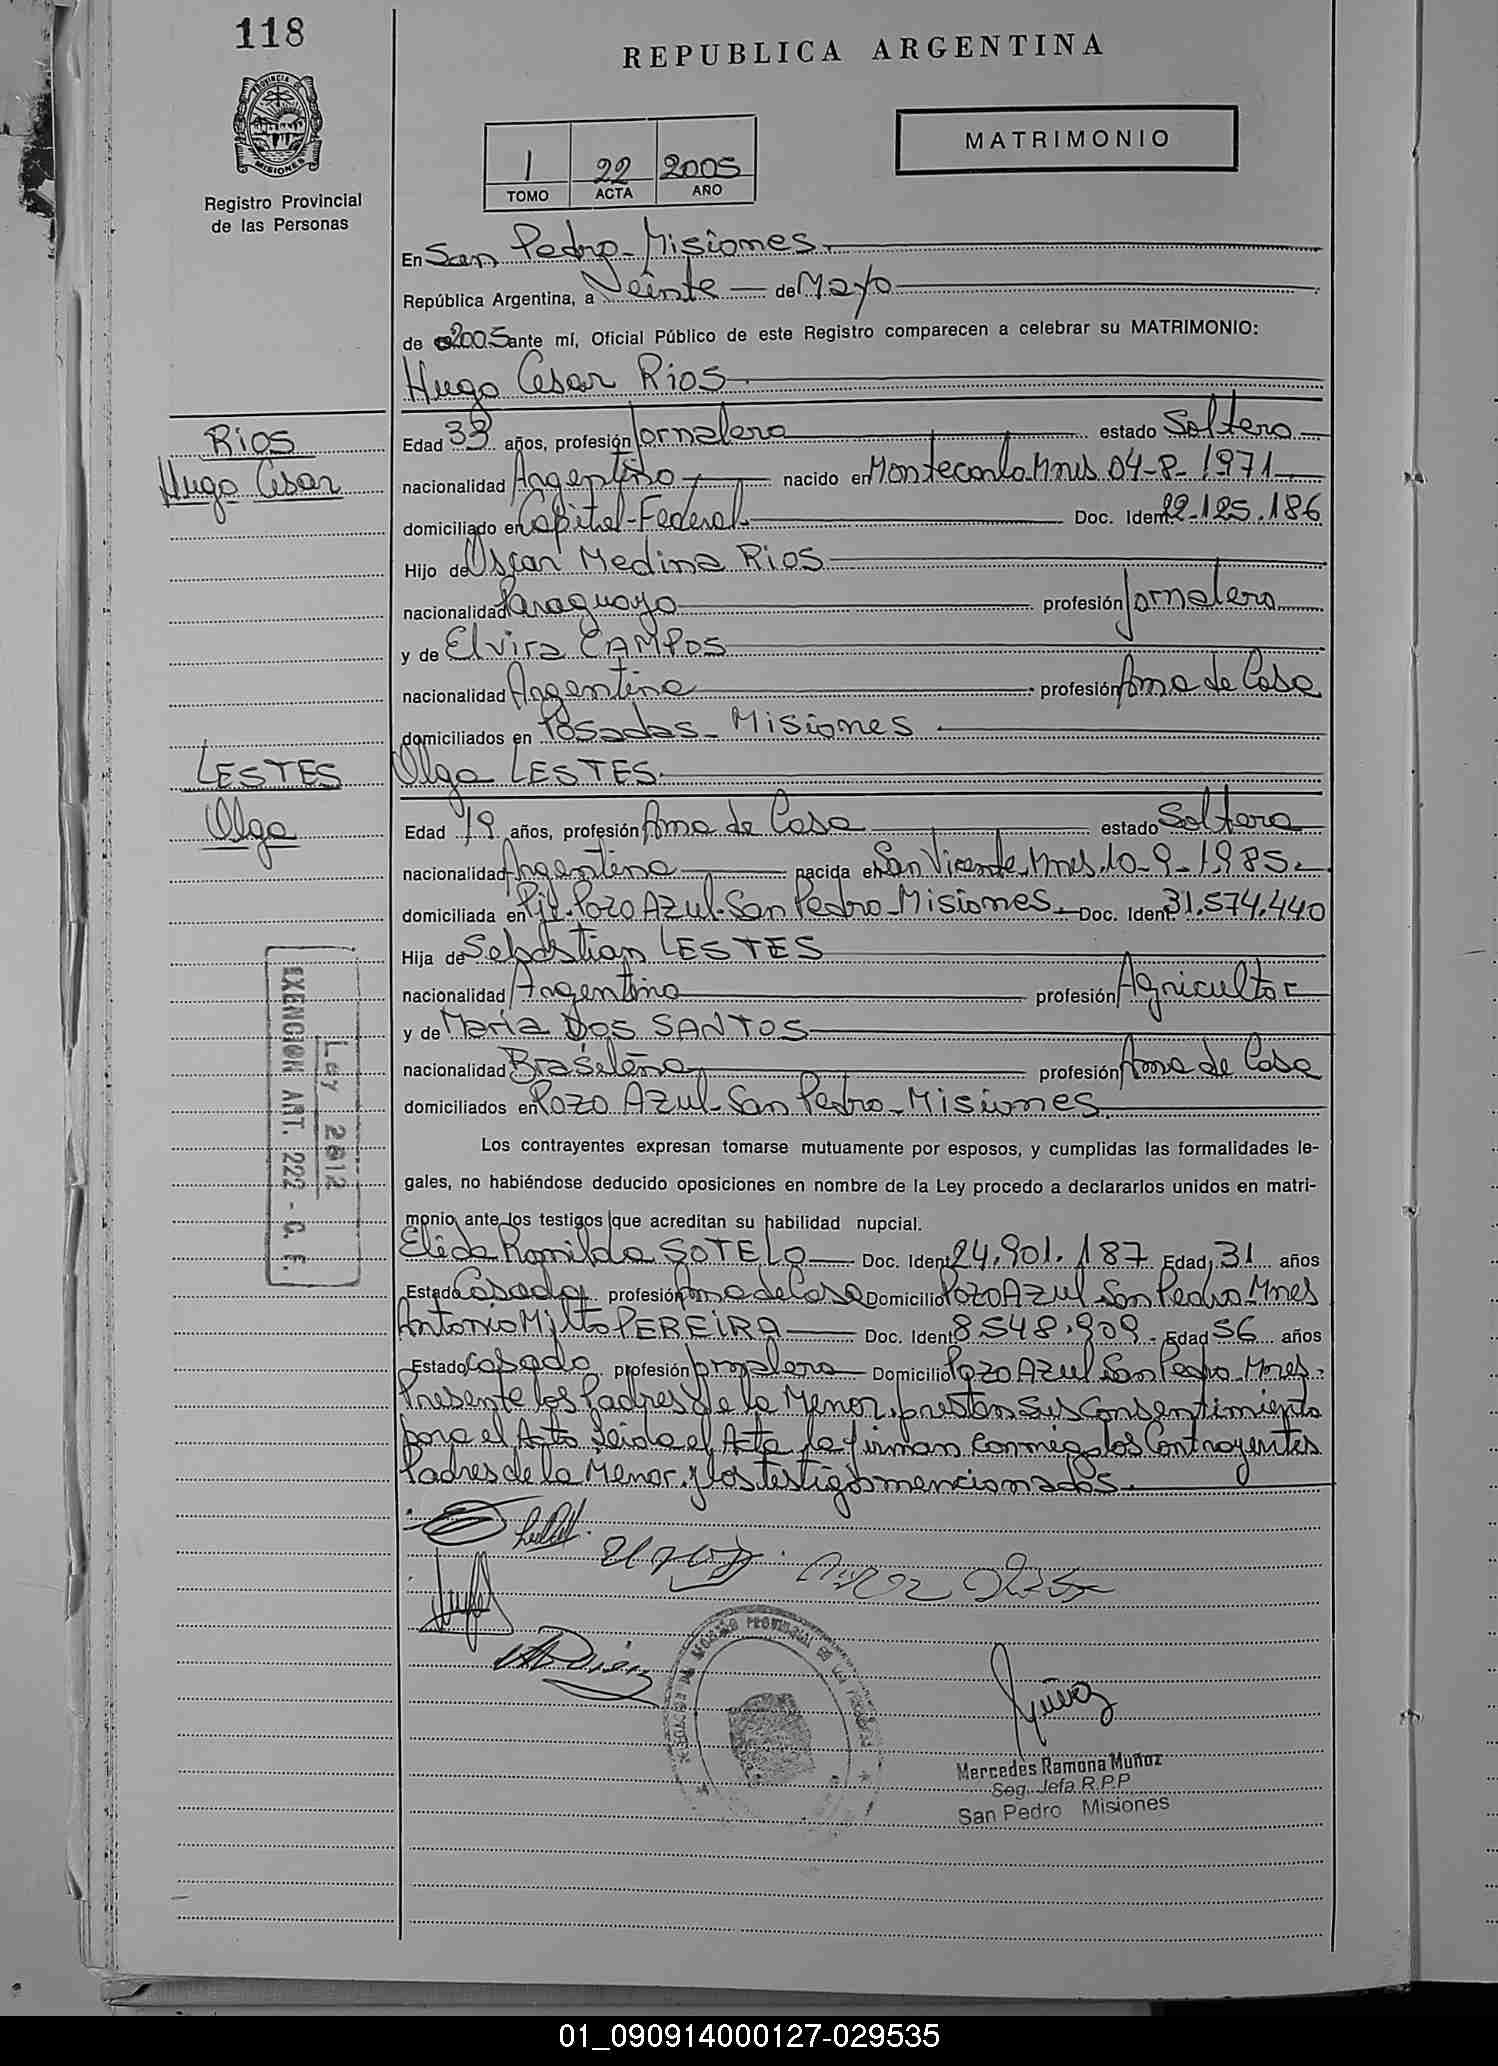 118
REPUBLICA ARGENTINA
MATRIMONIO
PROVINCIA DE
MISIONES
Registro Provincial
de las Personas
1 22 2005
TOMO ACTA AÑO
En San Pedro - Misiones.
República Argentina, a Veinte de Mayo
de 2005 ante mí, Oficial Público de este Registro comparecen a celebrar su MATRIMONIO:
Hugo Cesar Rios
Rios
Hugo Cesar
Edad 33 años, profesión Jornalero estado Soltero
nacionalidad Argentino nacido en Montecarlo-Mnes 04-8-1971
domiciliado en Capital-Federal. Doc. Ident. 22.125.186
Hijo de Oscar Medina Rios
nacionalidad Paraguayo profesión Jornalero
y de Elvira CAMPOS
nacionalidad Argentina profesión Ama de Casa
domiciliados en Posadas - Misiones
LESTES
Olga
Olga LESTES.
Edad 19 años, profesión Ama de Casa estado Soltera
nacionalidad Argentina nacida en San Vicente, Mnes. 10-9-1985
domiciliada en Pje. Pozo Azul-San Pedro-Misiones. Doc. Ident. 31.574.440
Hija de Sebastian LESTES
nacionalidad Argentino profesión Agricultor
y de Maria DOS SANTOS
nacionalidad Brasileña profesión Ama de Casa
domiciliados en Pozo Azul-San Pedro-Misiones.
EXENCION ART. 222 - C. F.
Ley 2612
Los contrayentes expresan tomarse mutuamente por esposos, y cumplidas las formalidades le-
gales, no habiéndose deducido oposiciones en nombre de la Ley procedo a declararlos unidos en matri-
monio ante los testigos que acreditan su habilidad nupcial.
Elida Romilda SOTELO Doc. Ident. 24.901.187 Edad 31 años
Estado Casada profesión Ama de Casa Domicilio Pozo Azul San Pedro-Mnes
Antonio Milto PEREIRA Doc. Ident. 8548.909 Edad 56 años
Estado Casado profesión Jornalero Domicilio Pozo Azul San Pedro-Mnes.
Presente los Padres de la Menor, prestan sus consentimiento
para el Acto Leida el Acta, la firman conmigo los Contrayentes
Padres de la Menor, y los testigos mencionados.
Mercedes Ramona Muñoz
Seg. Jefa R.P.P
San Pedro Misiones
01_090914000127-029535